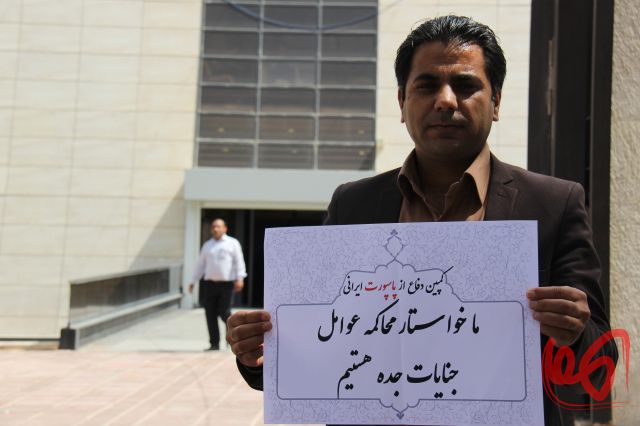 کمپین دفاع از پاسپورت ایرانی
ما خواستار محاکمه عوامل
جنایات جده هستیم